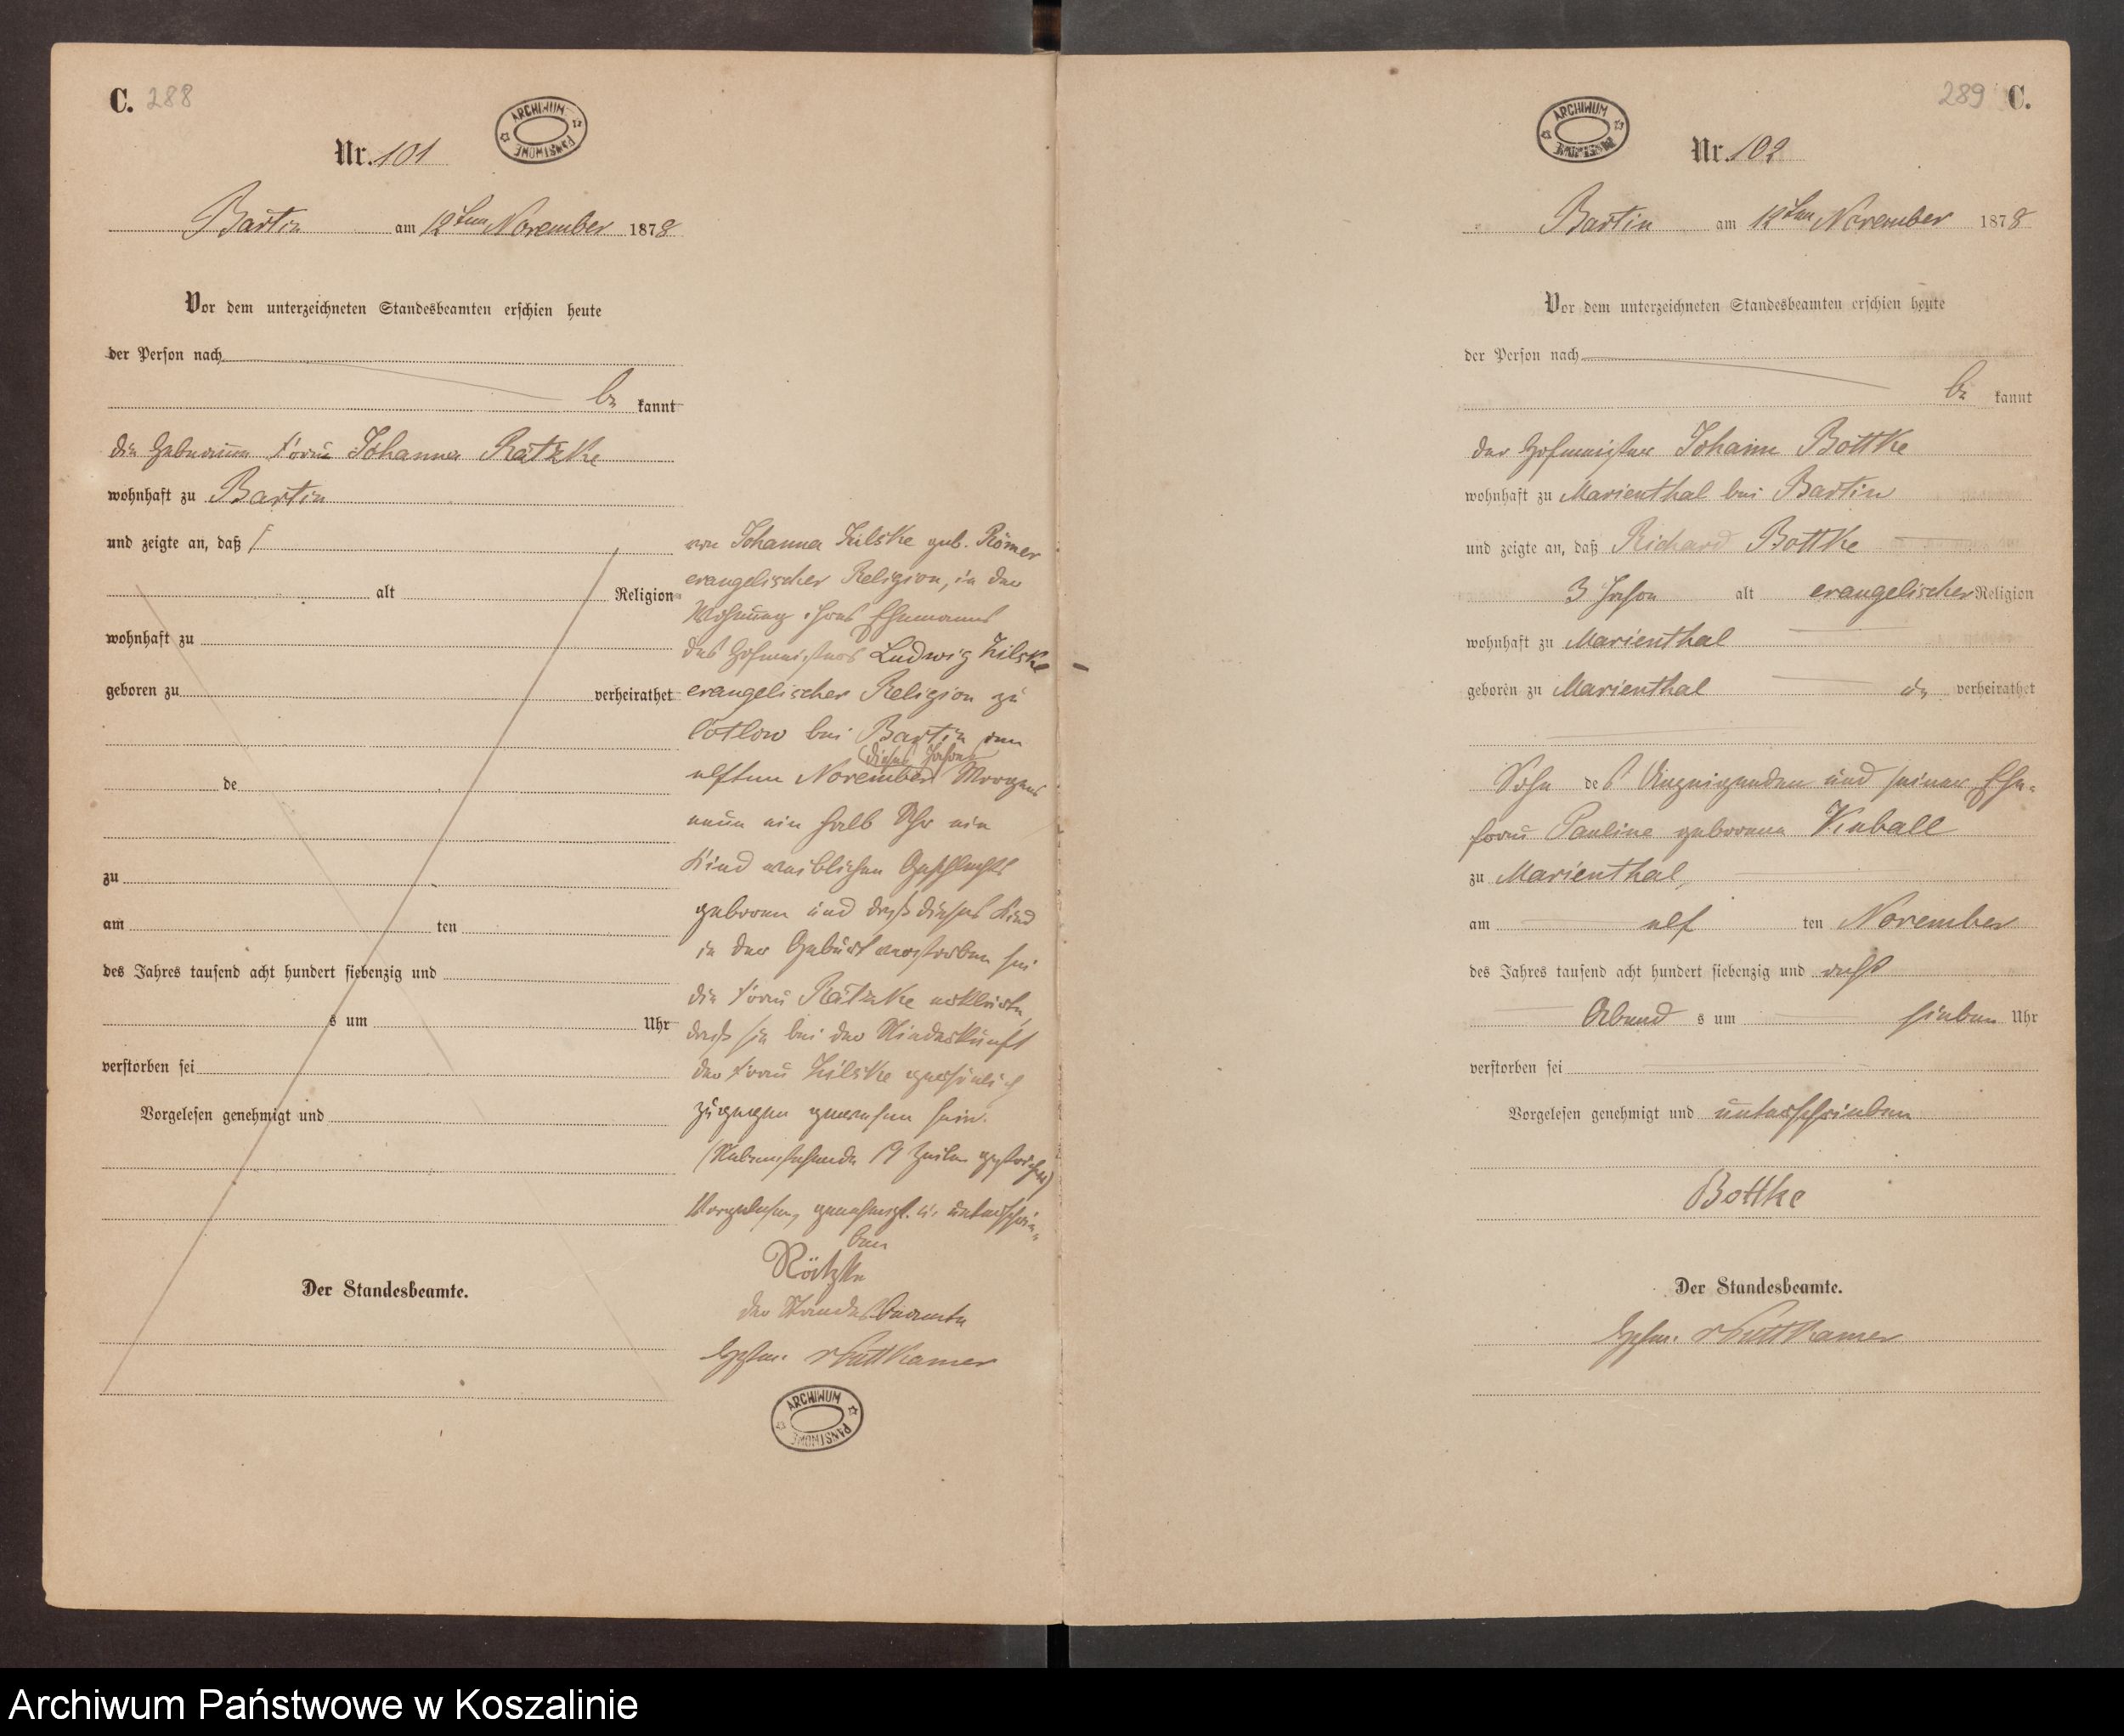 C. 288
ARCHIWUM PAŃSTWOWE
Nr. 101
Bartin am 12ten November 1878
Vor dem unterzeichneten Standesbeamten erschien heute
der Person nach
be kannt
die Hebamme Frau Johanna Rätzke
wohnhaft zu Bartin
und zeigte an, daß
alt Religion
wohnhaft zu
geboren zu verheirathet
de
zu
am ten
des Jahres tausend acht hundert siebenzig und
s um Uhr
verstorben sei
Vorgelesen genehmigt und
Der Standesbeamte.
von Johanna Zilske geb. Römer
evangelischer Religion, in der
Wohnung ihres Ehemanns
des Hofmeisters Ludwig Zilske
evangelischer Religion zu
bei Bartin am
(dieses Jahres)
elften November Morgens
neun ein halb Uhr ein
Kind weiblichen Geschlechts
geboren und daß dieses Kind
in der Geburt verstorben sei
die Frau Rätzke erklärte,
daß sie bei der Niederkunft
der Frau Zilske persönlich
zugegen gewesen sei.
(Nebenstehende 19 Zeilen gestrichen)
Vorgelesen, genehmigt u. unterschrie-
ben
Rätzke
der Standesbeamte
Puttkamer
ARCHIWUM PAŃSTWOWE
289 C.
ARCHIWUM PAŃSTWOWE
Nr. 102
Bartin am 12ten November 1878
Vor dem unterzeichneten Standesbeamten erschien heute
der Person nach
be kannt
der Hofmeister Johann Bottke
wohnhaft zu Marienthal bei Bartin
und zeigte an, daß Richard Bottke
3 Jahre alt evangelischer Religion
wohnhaft zu Marienthal
geboren zu Marienthal verheirathet
Sohn des Anzeigenden und seiner Ehe-
frau Pauline geborene
zu Marienthal,
am elf ten November
des Jahres tausend acht hundert siebenzig und acht
Abend s um sieben Uhr
verstorben sei
Vorgelesen genehmigt und unterschrieben
Bottke
Der Standesbeamte.
Puttkamer
Archiwum Państwowe w Koszalinie